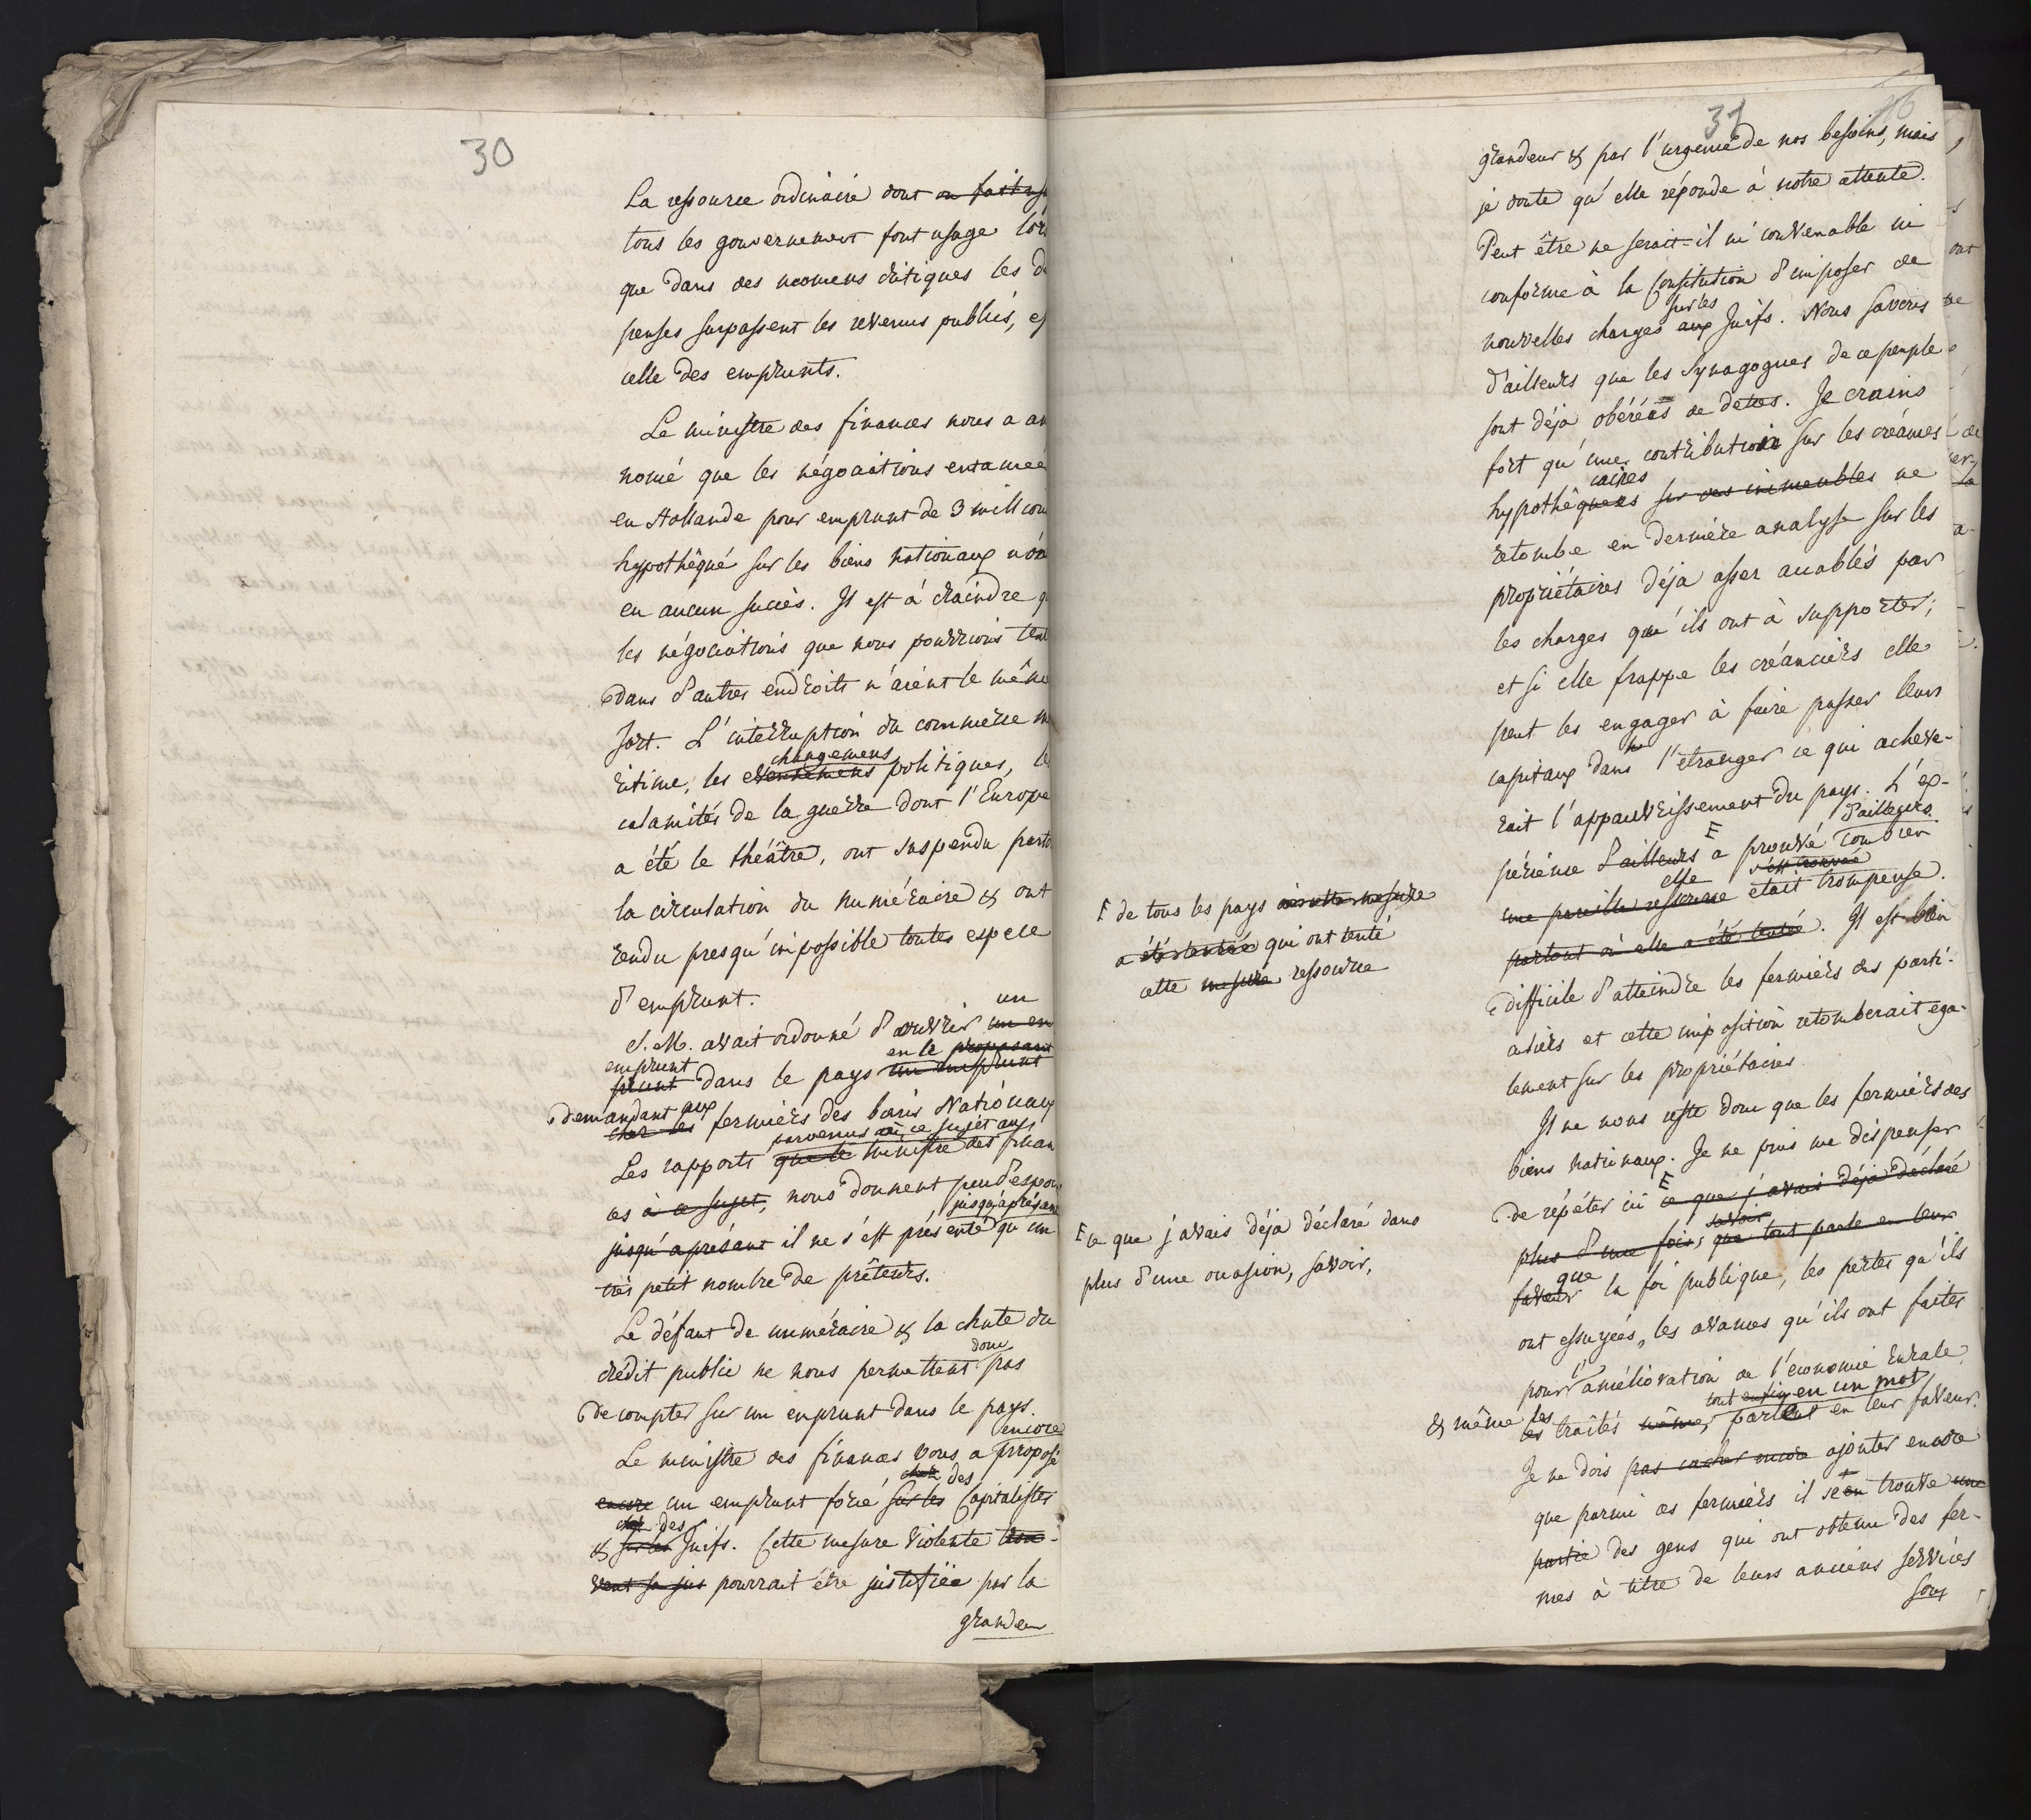 30
La ressource ordinaire dont on fait us
tous les gouvernement font usage lors
que dans des momens critiques les dé
penses surpassent les revenus publics, es
celle des emprunts.
Le ministre des finances nous a an
noncé que les négociations entamée
en Hollande pour emprunt de 3 million
hypothêqué sur les biens nationaux n'on
eu aucun succès. Il est à craindre q
les négociations que nous pourrions tent
dans d'autres endroits n'aient le même
sort. L'interruption du commerce m
changemens
ritime, les evenemens politiques, le
calamités de la guerre dont l'Europe
a été le théâtre, ont suspendu parto
la circulation du numéraire & ont
rendu presqu'impossible toutes espece
d'emprunt.
un
S. M. avait ordonné d'ouvrir un em
emprunt en le proposant
prunt dans le pays un emprunt
demandant aux
chez les fermiers des biens Nationaux
parvenus à ce sujet aux
Les rapports que le ministre des finan
ces à ce sujet, nous donnent peu d'espoir
jusqu'aprésent
jusqu'aprésant il ne s'est présenté qu'un
très petit nombre de prêteurs.
Le défaut de numéraire & la chute du
donc
crédit public ne nous permettent pas
de compter sur un enprunt dans le pays.
encore
Le ministre des finances vous a proposé
chez des
encore un emprunt forcé sur les Capitalistes
chez des
& sur les Juifs. Cette mesure violente trou-
vent sa jus pourrait être justifiée par la
grandeu
31
grandeur & par l'urgence de nos besoins, mais
je doute qu'elle réponde à notre attente.
Peut être ne serait-il ni convenable ni
conforme à la Constitution d'imposer de
sur les
nouvelles charges aux Juifs. Nous savons
d'ailleurs que les Synagogues de ce peuple
sont déja obérées de dettes. Je crains
fort qu'une contribution sur les créances
caires
hypothêquees sur ces immeubles ne
retombe en dernière analyse sur les
propriétaires déja assez accablés par
les charges qu'ils ont à supporter;
et si elle frappe les créanciers elle
peut les engager à faire passer leurs
capitaux dans l'étranger ce qui acheve-
rait l'appauvrissement du pays. L'ex-
d'ailleurs
périence d'ailleurs a prouvé combien
elle s'est trouvée
une pareille ressource était trompeuse.
partout où elle a été tentée. Il est bien
difficile d'atteindre les fermiers des parti-
culiers et cette imposition retomberait éga-
lement sur les propriétaires.
Il ne nous reste donc que les fermiers des
biens nationaux. Je ne puis me dispenser
de répéter ici ce que j'avais déja déclaré
savoir
plus d'une fois, que tout parle en leur
que
faveur la foi publique, les pertes qu'ils
ont essuyées, les avances qu'ils ont faites
pour l'amélioration de l'économie rurale,
tout enfin en un mot
& même les
les traités même, parlent en leur faveur.
Je ne dois pas cacher encore ajouter encore
que parmi ces fermiers il se en trouve une
partie des gens qui ont obtenu des fer-
mes à titre de leurs anciens services
sous
F de tous les pays où cette mesure
a été tentée qui ont tenté
cette mesure ressource
F ce que j'avais déja déclaré dans
plus d'une occasion, savoir,